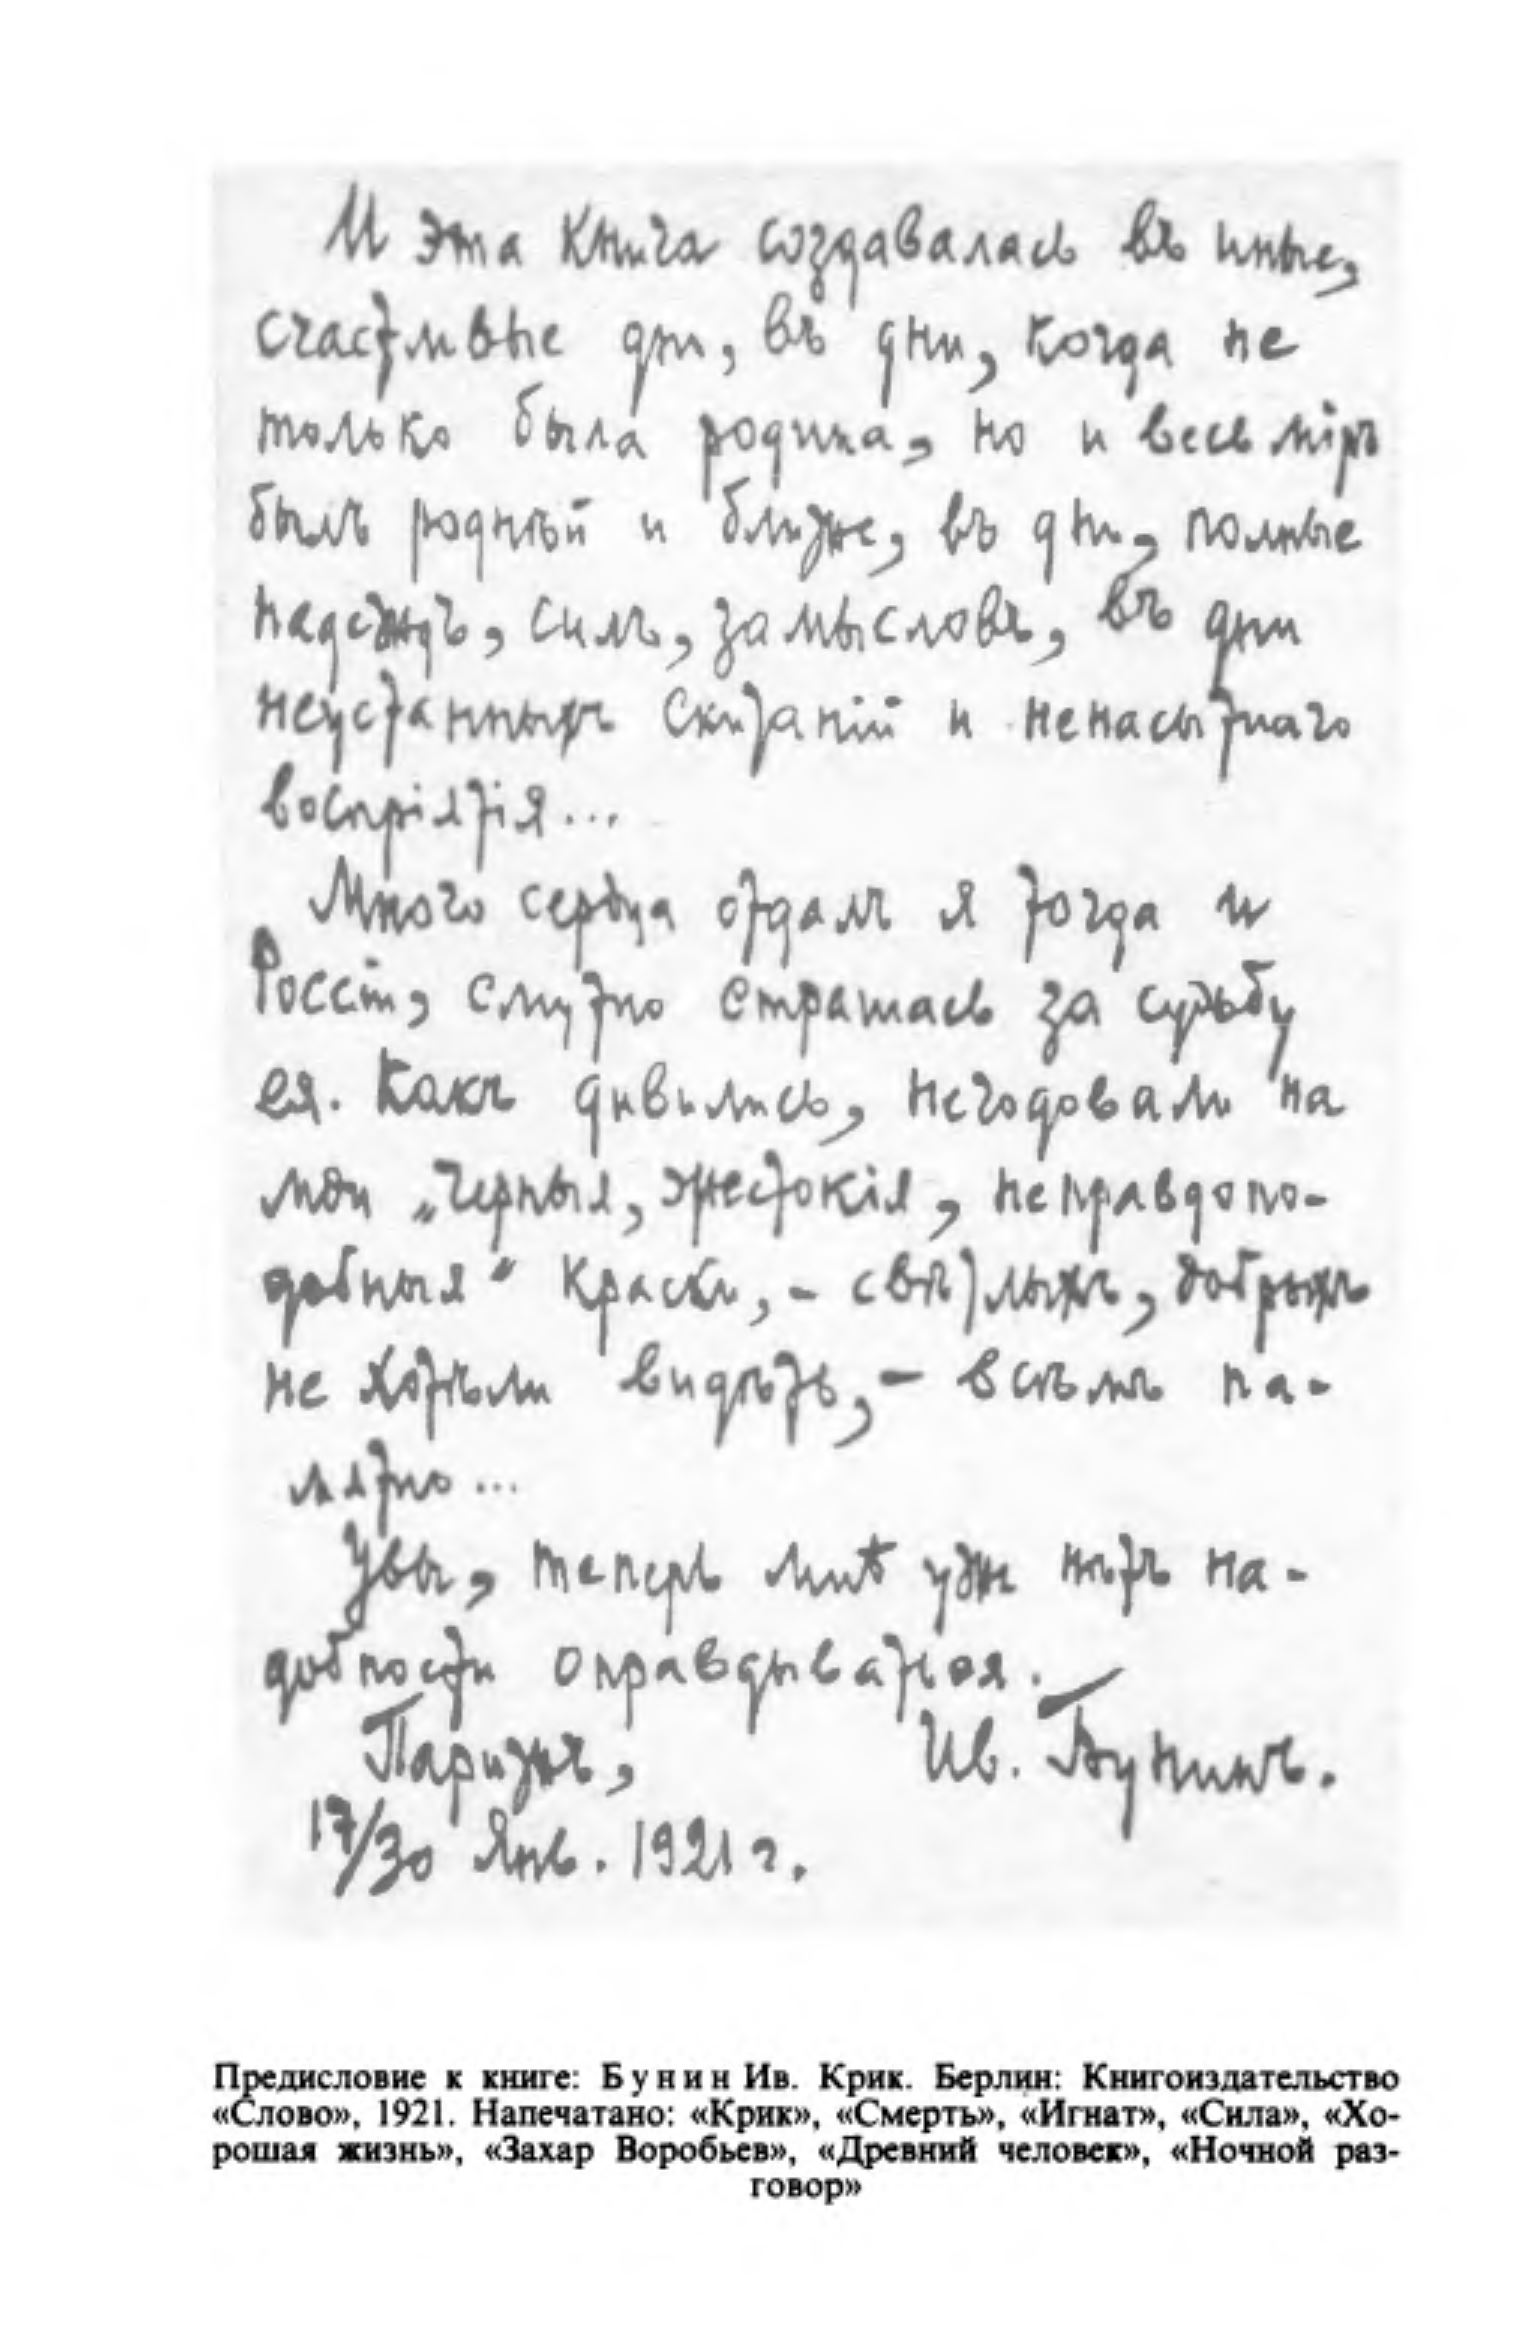 И эта книга создавалась въ иные,
счастливые дни, въ дни, когда не
только была родина, но и весь міръ
былъ роднѣй и ближе, въ дни, полные
надеждъ, силъ, замысловъ, въ дни
неустанныхъ скитаній и ненасытнаго
воспріятія...
Много сердца отдалъ я тогда и
Россіи, смутно страшась за судьбу
ея. Какъ дивились, негодовали на
мои „черныя, жестокія, неправдопо-
добныя" краски, - свѣтлыхъ, добрыхъ
не хотѣли видѣть, - всѣмъ па-
мятно...
Увы, теперь мнѣ уже нѣтъ на-
добности оправдываться.
Парижъ, Ив. Бунинъ.
17/30 Янв. 1921 г.
Предисловие к книге: Бунин Ив. Крик. Берлин: Книгоиздательство
«Слово», 1921. Напечатано: «Крик», «Смерть», «Игнат», «Сила», «Хо-
рошая жизнь», «Захар Воробьев», «Древний человек», «Ночной раз-
говор»